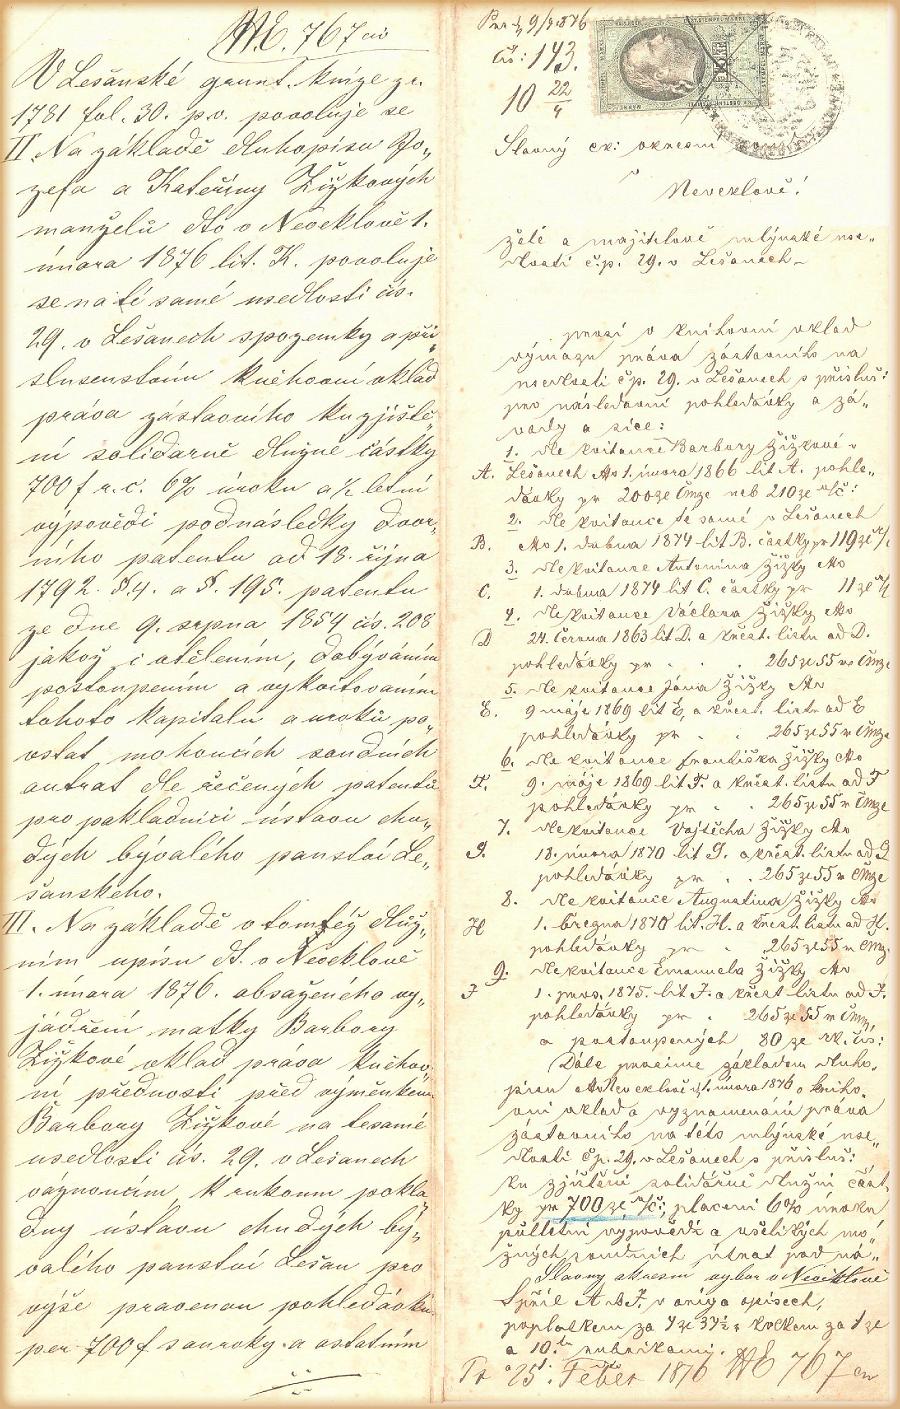 NE. 767 civ
V Lešanské grunt. knize zr.
1781 fol. 30. p.v. povoluje se
II. Na základě dluhopisu Jo„
zefa a Kateřiny Žižkových
manželů dto v Neveklově 1.
února 1876 lit. K. povoluje
se na té samé usedlosti čís.
29. v Lešanech s pozemky a pří„
slusenstvím knihovní vklad
práva zástavního ku zjiště„
ní solidarně dlužné částky
700 f r.c. 6% úroku a ½ letní
výpovědi pod následky dvor„
ního patentu od 18. října
1792. §.4. a §. 195. patentu
ze dne 9. srpna 1854 čís. 208
jakož i vtělením, dobýváním
postoupením a vykvitováním
tohoto kapitalu a uroků po„
vstat mohoucích soudních
autrat dle řečených patentů
pro pokladnici ústavu chu„
dých bývalého panství Le„
šanského.
III. Na základě v tomtéž dluž„
ním upisu dt. v Neveklově
1. února 1876. obsaženého vy„
jádření matky Barbory
Žižkové vklad práva knihov„
ní přednosti před výměnkem
Barbory Žižkové na tesamé
usedlosti čís. 29. v Lešanech
váznoucím, k rukoum pokla„
dny ústavu chudých bý„
valého panství Lešan pro
výše pravenou pohledávku
per 700 f s auroky a ostatním
9/3 876
čís: 143.
10 22/4
Slavný ck: okresní
Neveklově!
a majitelové mlýnské use„
dlosti č.p. 29. v Lešanech
prosí o knihovní vklad
výmazu práva zástavního na
usedlosti č.p. 29. v Lešanech s přísluš:
pro následovní pohledávky a zá„
vady a sice:
1. Dle kvitance Barbory Žižkové v
A. Lešanech dto 1. února 1866 lit A. pohle„
dávky pr 200 ze čmze neb 210 ze r/č:
2. Dle kvitance té samé v Lešanech
B. dto 1. dubna 1874 lit B. částky pr 119 ze
3. Dle kvitance Antonína Žižky dto
C. 1. dubna 1874 lit C. částky pr 11 ze
4. Dle kvitance Václava Žižky dto
D 24. června 1863 lit D. a křest. listu od D.
pohledávky pr . . 265 ze 55 čmze
5. Dle kvitance Jána Žižky dto
E. 9 máje 1869 lit E, a křest. listu od E
pohledávky pr . . 265 ze 55 čmze
6. Dle kvitance Františka Žižky dto
F. 9. máje 1869 lit F. a křest. listu od F
pohledávky pr . . 265 ze 55 čmze
7. Dle kvitance Vojtěcha Žižky dto
G. 18. února 1870 lit G. a křest. listu od G
pohledávky pr . . 265 ze 55 čmze
8. Dle kvitance Augustina Žižky dto
H 1. března 1870 lit. H. a křest listu od H.
pohledávky pr . 265 ze 55 čmz.
9. Dle kvitance Emanuela Žižky dto
J 1. pros. 1875. lit J. a křest listu od J.
pohledávky pr . 265 ze 55 čmz,
a postoupených 80 ze
Dále prosíme základem dluho„
pisu dto Neveklově 1. února 1876 o kniho„
vní vklad a vyznamenání práva
zástavního na této mlýnské use„
dlosti č.p. 29. v Lešanech s přísluš:
ku zjištění solidárně dlužní část
ky pr 700 ze r/č:, placení 6% úroku
půlletní výpovědi a všelikých mo„
žných soudních útrat pod ná„
Slavný okresní výbor v Neveklově
příl A. B. F. v orig a opisech,
poplatkem za 7 ze 37½ kolkem za 1 ze
a 10. rubrikami.
Pr 25. Feber 1876 NE 767 civ